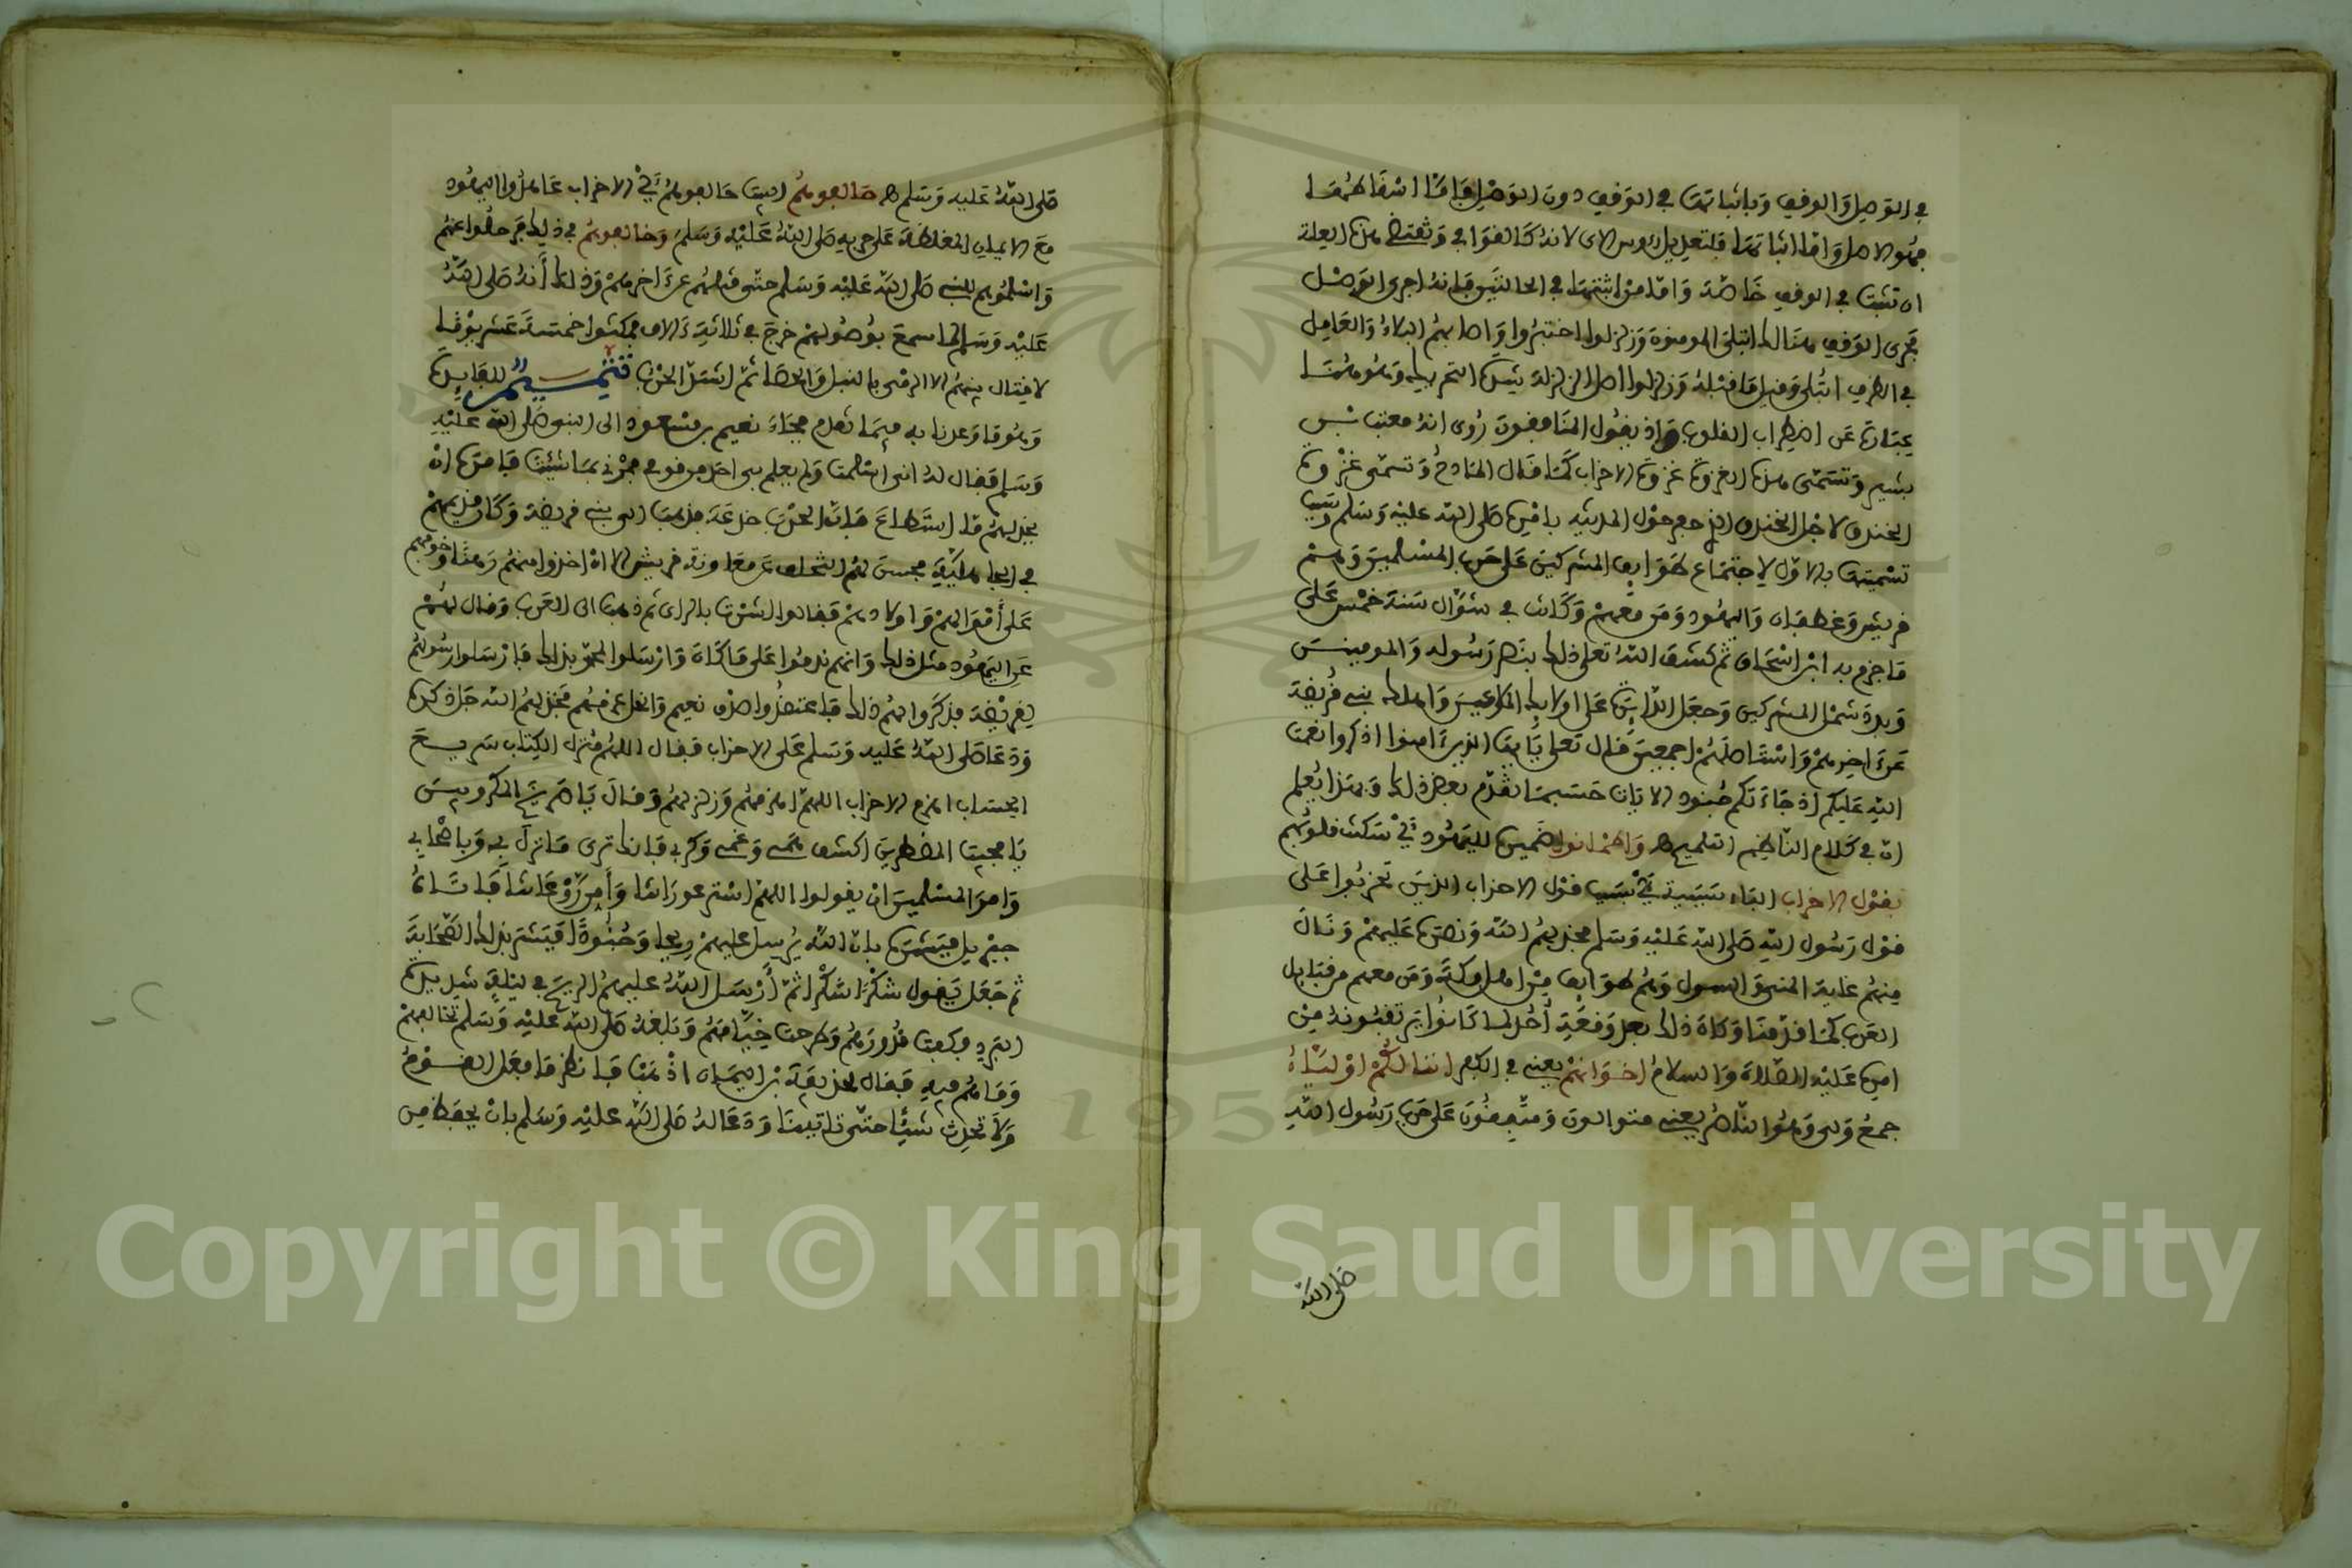 في الوصل والوقف وباثباتها في الوقف دون الوصل فاما اسقاطهما
فهو الاصل واما اثباتها فلتعديل رءوس الاي لانه كالقوافي وتقتضي هذه العلة
ان تثبت في الوقف خاصة واما من اثبتها في الحالتين فانه اجرى الوصل
مجرى الوقف هنالك ابتلى المومنون وزلزلوا اختبروا واصابهم البلاء والعامل
في الظرف ابتلى وقيل ما قبله وزلزلوا اصل الزلزلة شدة التحريك وهو هنا
عبارة عن اضطراب القلوب واذ يقول المنافقون روي انه معتب بن
بشير وتسمى هذه الغزوة غزوة الاحزاب كما قال المادح وتسمى غزوة
الخندق لاجل الخندق الذي حفر حول المدينة بامره صلى الله عليه وسلم وسبب
تسميتها بالاول لاجتماع طوايف المشركين على حرب المسلمين وهم
قريش وغطفان واليهود ومن معهم وكانت في شوال سنة خمس على
ما جزم به ابن اسحاق ثم كشف الله تعلى ذلك بنصر رسوله والمومنين
وبدد شمل المشركين وجعل الدايرة على اولايك الملاعين واهلك بني قريضة
عن ءاخرهم واستاصلهم اجمعين قال تعلى يايها الذين ءامنوا اذكروا نعمت
الله عليكم اذ جاءتكم جنود الايات حسبما تقدم بعض ذلك وبهذا يعلم
ان في كلام الناظم تلميح واطمانوا ضمير لليهود اي سكنت قلوبهم
بقول الاحزاب الباء سببية اي بسبب قول الاحزاب الذين تحزبوا على
قول رسول الله صلى الله عليه وسلم فخذلهم الله ونصره عليهم ونال
منهم غاية المنى والسول وهم طوايف من اهل مكة ومن معهم من قبايل
العرب كما قدمنا وكان ذلك بعد وقعة احد لما كانوا يرتقبونه من
امره عليه الصلاة والسلام اخوانهم يعني في الكفر اننا لكم اولياء
جمع ولي وهو الناصر يعني متوالون ومتفقون على حرب رسول الله
صلى الله
صلى الله عليه وسلم حالفوهم البيت حالفوهم اي الاحزاب عاهدوا اليهود
مع الايمان المغلظة على حربه صلى الله عليه وسلم وخالفوهم في ذلك ورجعوا عنهم
واسلموهم للنبي صلى الله عليه وسلم حتى قتلهم عن ءاخرهم وذلك انه صلى الله
عليه وسلم لما سمع بوصولهم خرج في ثلاثة ءالاف فمكثوا خمسة عشر يوما
لا قتال بينهم الا الرمي بالنبل والحصا ثم اشتد الحرب تتميم للفايدة
وهو ما وعدنا به فيما تقدم فجاء نعيم بن مسعود الى النبي صلى الله عليه
وسلم فقال له اني اسلمت ولم يعلم بي احد من قومي فمرني بما شئت فامره ان
يخذلهم ما استطاع فان الحرب خدعة فذهب الى بني قريضة وكان نديمهم
في الجاهلية فحسن لهم التخلف عن معاونة قريش الا ان اخذوا منهم رهنا وخوفهم
على اموالهم واولادهم فقالوا اشرت بالراي ثم ذهب الى العرب وقال لهم
عن اليهود مثل ذلك وانهم ندموا على ما كان وارسلوا لمحمد بذلك فارسلوا رسولهم
لقريضة فذكروا لهم ذلك فاعتقدوا صدق نعيم وانحل عزمهم فخذلهم الله جل ذكره
ودعا صلى الله عليه وسلم على الاحزاب فقال اللهم منزل الكتاب سريع
الحساب اهزم الاحزاب اللهم اهزمهم وزلزلهم وقال يا صريخ المكروبين
يا مجيب المضطرين اكشف همي وغمي وكربي فانك ترى ما نزل بي وباصحابي
وامر المسلمين ان يقولوا اللهم استر عوراتنا وءامن روعاتنا فاتاه
جبريل فبشره بان الله يرسل عليهم ريحا وجنودا فبشر بذلك الصحابة
ثم جعل يقول شكرا شكرا ثم ارسل الله عليهم الريح في ليلة شديدة
البرد فكفت قدورهم وطرحت خيامهم وبلغه صلى الله عليه وسلم تخالفهم
وما هم فيه فقال لحذيفة بن اليمان اذهب فانظر ما فعل القوم
ولا تحدث شيئا حتى تاتينا ودعا له صلى الله عليه وسلم بان يحفظ من
Copyright © King Saud University
1957